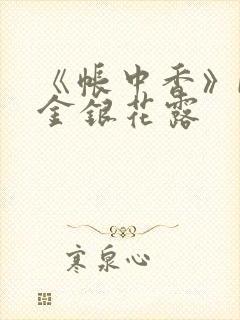 《帐中香》
金银花露
寒泉心